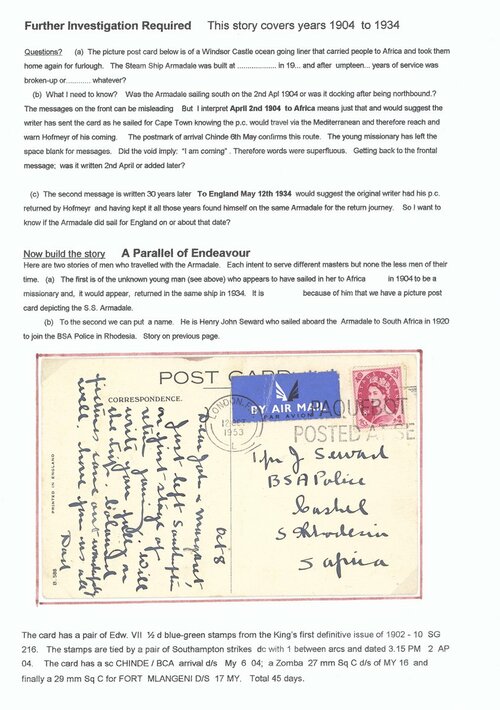 Further Investigation Required This story covers years 1904 to 1934
Questions? (a) The picture post card below is of a Windsor Castle ocean going liner that carried people to Africa and took them
home again for furlough. The Steam Ship Armadale was built at ................... in 19... and after umpteen... years of service was
broken-up or............ whatever?
(b) What I need to know? Was the Armadale sailing south on the 2nd Apl 1904 or was it docking after being northbound.?
The messages on the front can be misleading But I interpret April 2nd 1904 to Africa means just that and would suggest the
writer has sent the card as he sailed for Cape Town knowing the p.c. would travel via the Mediterranean and therefore reach and
warn Hofmeyr of his coming. The postmark of arrival Chinde 6th May confirms this route. The young missionary has left the
space blank for messages. Did the void imply: "I am coming" . Therefore words were superfluous. Getting back to the frontal
message; was it written 2nd April or added later?
(c) The second message is written 30 years later To England May 12th 1934 would suggest the original writer had his p.c.
returned by Hofmeyr and having kept it all those years found himself on the same Armadale for the return journey. So I want to
know if the Armadale did sail for England on or about that date?
Now build the story A Parallel of Endeavour
Here are two stories of men who travelled with the Armadale. Each intent to serve different masters but none the less men of their
time. (a) The first is of the unknown young man (see above) who appears to have sailed in her to Africa in 1904 to be a
missionary and, it would appear, returned in the same ship in 1934. It is because of him that we have a picture post
card depicting the S.S. Armadale.
(b) To the second we can put a name. He is Henry John Seward who sailed aboard the Armadale to South Africa in 1920
to join the BSA Police in Rhodesia. Story on previous page.
POST CARD
CORRESPONDENCE.
PRINTED IN ENGLAND
B. 588
BY AIR MAIL
PAR AVION
LONDON
1953
PAQUEBOT
POSTED AT SEA
Oct 8
Dear John & Margaret,
Just left Southampton
on first stage of
return journey. Will
write you fully on
the trip.
pictures came out wonderfully
well. Love from us all
Dad
J Seward
BSA Police
Cashel
S Rhodesia
S Africa
The card has a pair of Edw. VII ½ d blue-green stamps from the King's first definitive issue of 1902 - 10 SG
216. The stamps are tied by a pair of Southampton strikes dc with 1 between arcs and dated 3.15 PM 2 AP
04. The card has a sc CHINDE / BCA arrival d/s My 6 04; a Zomba 27 mm Sq C d/s of MY 16 and
finally a 29 mm Sq C for FORT MLANGENI D/S 17 MY. Total 45 days.